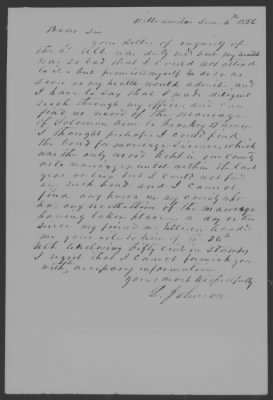 Williamston June 4th 1886
Dear Sir
your letter of enquiry of
the 2d ult was duly recd but my health
was so bad that I could not attend
to it but promised myself to do so as
soon as my health would admit and
I have to say that I made diligent
search through my office and can
find no record of the marriage
of Solomon to
I thought perhaps I could find
the bond for marriage license which
was the only record kept in our County
of marriages until within the last
year or two but I could not find
any such bond and I cannot
find any person in my county who
has any recollection of the marriage
having taken place a day or two
since my friend Mr Ellison handed
me your note to him of the 26th
ult enclosing Fifty cents in Stamps
I regret that I cannot furnish you
with necessary information
yours most Respectfully
L. Johnson